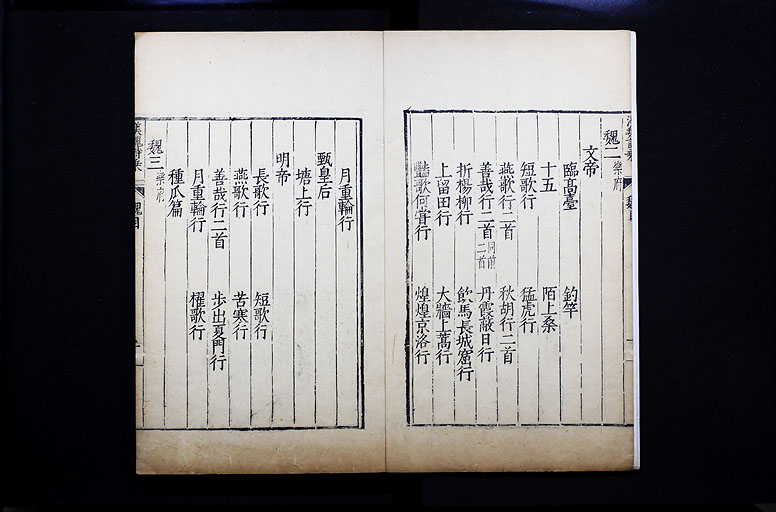 魏二 樂府
文帝
臨高臺 釣竿
十五 陌上桑
短歌行 猛虎行
燕歌行二首 秋胡行二首
善哉行二首 同前二首 丹霞蔽日行
折楊柳行 飲馬長城窟行
上留田行 大牆上蒿行
豔歌何嘗行 煌煌京洛行
月重輪行
甄皇后
塘上行
明帝
長歌行 短歌行
燕歌行 苦寒行
善哉行二首 步出夏門行
月重輪行 櫂歌行
種瓜篇
魏三 樂府
漢魏詩乘 魏目